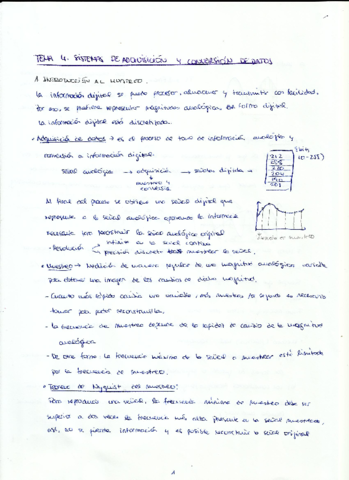 TEMA 4. SISTEMAS DE ADQUISICIÓN Y CONVERSIÓN DE DATOS
1. INTRODUCCIÓN AL MUESTREO.
La información digital se puede procesar, almacenar y transmitir con facilidad,
por eso, se prefiere representar magnitudes analógicas en forma digital.
La información digital está discretizada.
• Adquisición de datos → es el proceso de toma de información analógica y
conversión a información digital.
8 bits
(0-255)
Señal analógica → adquisición → señales digitales →
muestreo y
conversión
212
Al final del proceso se obtiene una señal digital que
representa a la señal analógica
para reconstruir la señal analógica original
- Resolución
infinita en la señal continua
precisión al muestrear la señal.
• Muestreo → Medición de manera regular de una magnitud analógica
para obtener una imagen de los cambios de dicha magnitud.
- Cuanto más rápido cambia una variable, más muestras por segundo es necesario
tomar para poder reconstruirla.
- La frecuencia de muestreo depende de la rapidez de cambio de la magnitud
analógica
- De otra forma: la frecuencia máxima de la señal a muestrear está limitada
por la frecuencia de muestreo.
• Teorema de Nyquist del muestreo:
Para reproducir una señal, la frecuencia mínima de muestreo debe ser
superior a dos veces la frecuencia más alta presente en la señal muestreada,
así, no se pierde información y es posible reconstruir la señal original
1